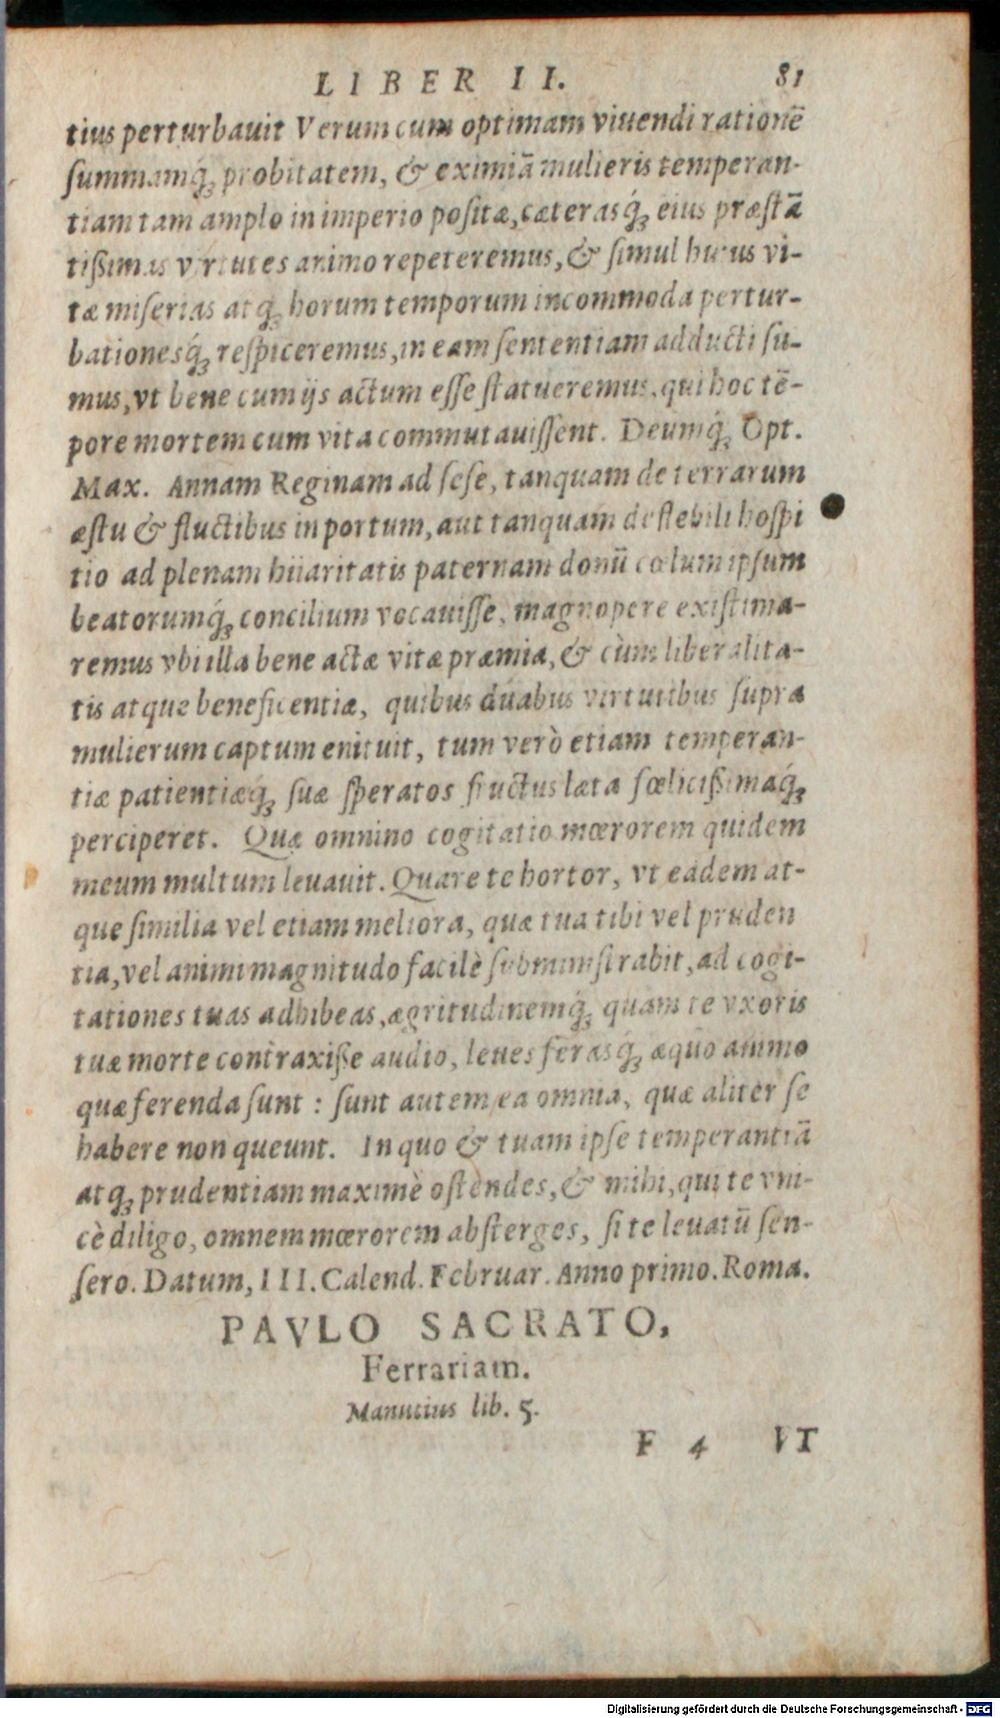 LIBER II. 81
tius perturbauit Verum cum optimam viuendi rationē
summamq́ꝫ probitatem, & eximiā mulieris temperan-
tiam tam amplo in imperio positæ, cæterasq́ꝫ eius præstā
tißimas virtutes animo repeteremus, & simul huius vi-
tæ miserias atqꝫ horum temporum incommoda pertur-
bationesq́ꝫ respiceremus, in eam sententiam adducti su-
mus, vt bene cum ijs actum esse statueremus, qui hoc tē-
pore mortem cum vita commutauissent. Deumq́ꝫ Opt.
Max. Annam Reginam ad sese, tanquam de terrarum
æstu & fluctibus in portum, aut tanquam de flebili hospi
tio ad plenam hilaritatis paternam domū cœlum ipsum
beatorumq́ꝫ concilium vocauisse, magnopere existima-
remus vbi illa bene actæ vitæ præmia, & cùm liberalita-
tis atque beneficentiæ, quibus duabus virtutibus supra
mulierum captum enituit, tum verò etiam temperan-
tiæ patientiæq́ꝫ suæ speratos fructus læta fœlicißimaq́ꝫ
perciperet. Quæ omnino cogitatio mœrorem quidem
meum multum leuauit. Quare te hortor, vt eadem at-
que similia vel etiam meliora, quæ tua tibi vel pruden
tia, vel animi magnitudo facilè subministrabit, ad cogi-
tationes tuas adhibeas, ægritudinemq́ꝫ quam te vxoris
tuæ morte contraxiße audio, leues ferasq́ꝫ æquo animo
quæ ferenda sunt : sunt autem ea omnia, quæ aliter se
habere non queunt. In quo & tuam ipse temperantiā
atqꝫ prudentiam maximè ostendes, & mihi, qui te vni-
cè diligo, omnem mœrorem absterges, si te leuatū sen-
sero. Datum, III. Calend. Februar. Anno primo. Roma.
PAVLO SACRATO,
Ferrariam.
Manutius lib. 5.
F 4 VT
Digitalisierung gefördert durch die Deutsche Forschungsgemeinschaft - DFG